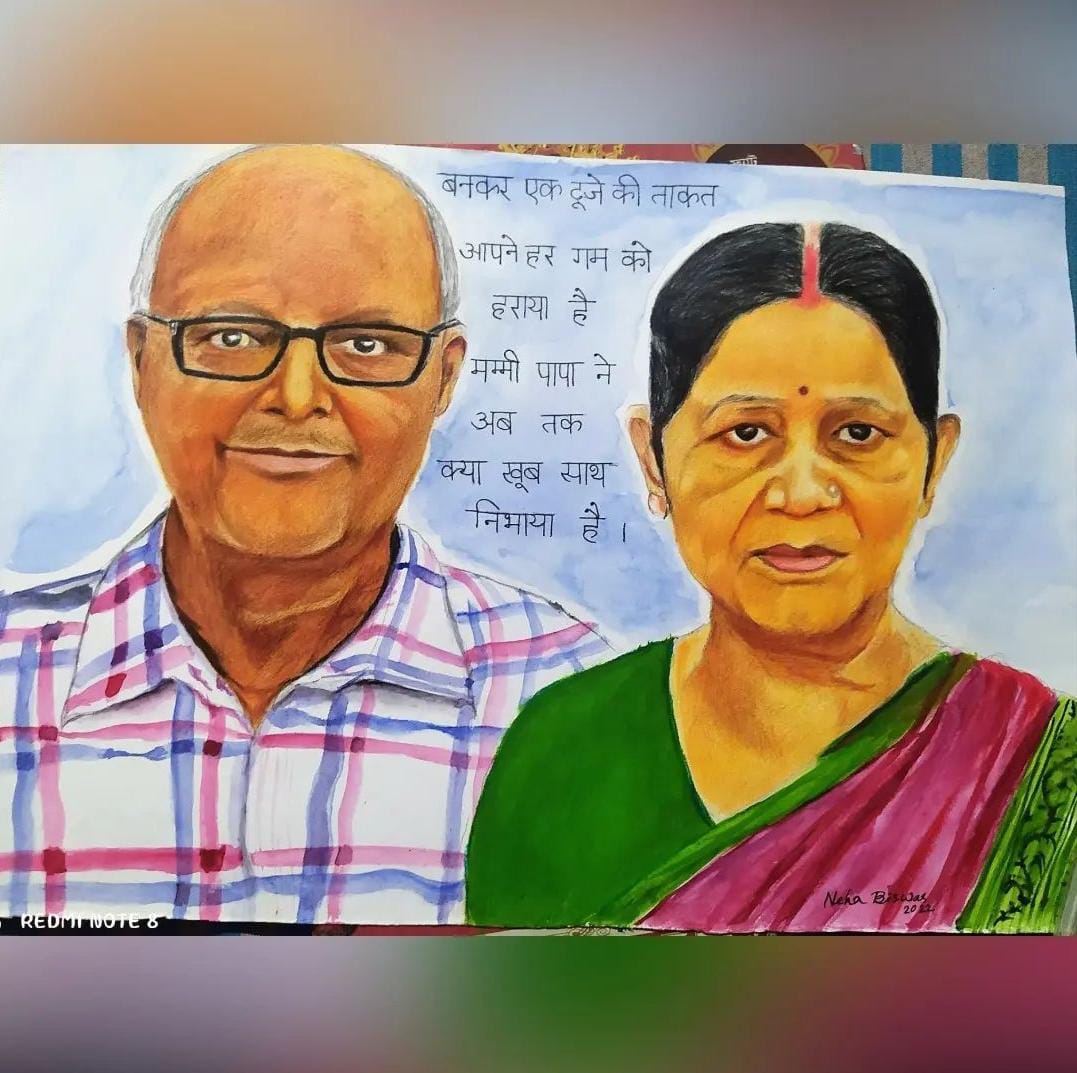 बनकर एक दूजे की ताकत
आपने हर गम को
हराया है
मम्मी पापा ने
अब तक
क्या खूब साथ
निभाया है ।
Neha Biswas
2022
REDMI NOTE 8